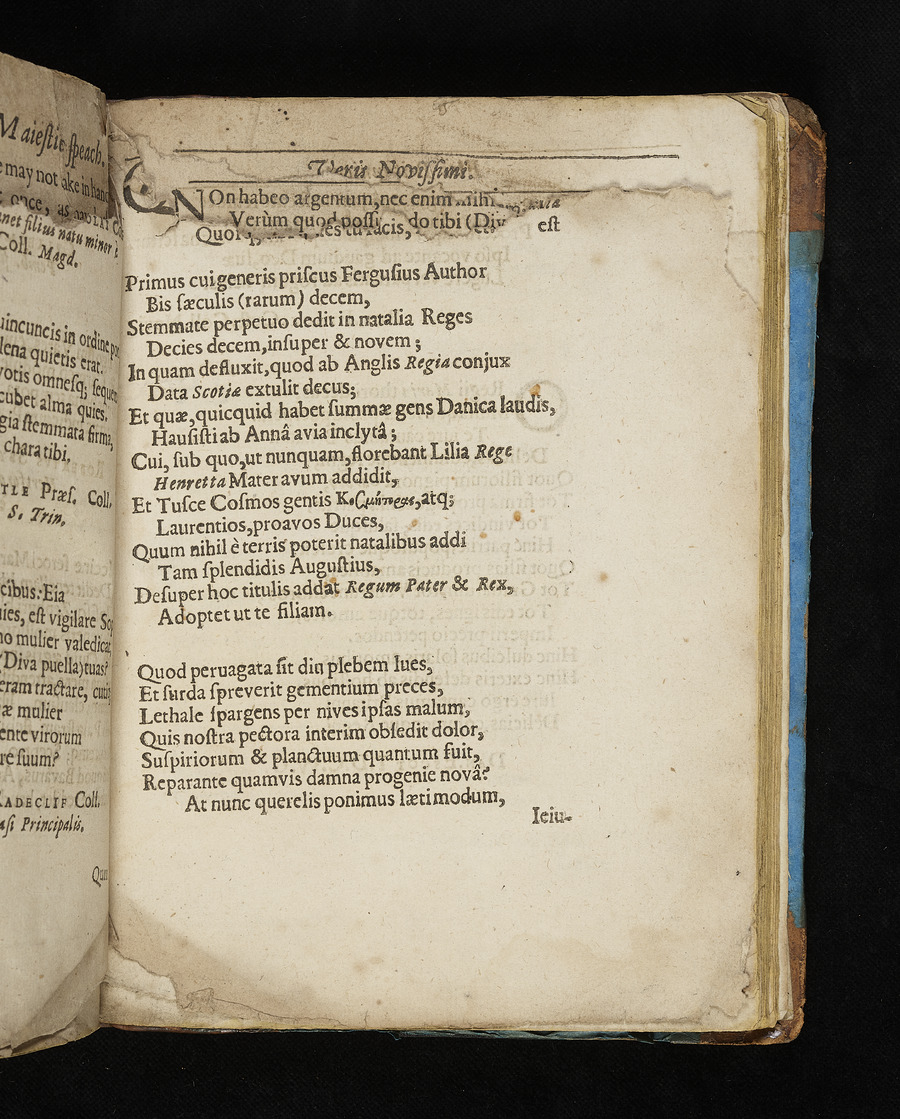 Maiestie speach.
may not take in hand
once, as
net filius natu minor
Coll. Magd.
uincuncis in ordine
lena quietis erat.
votis omnesq; sequen
cubet alma quies.
gia stemmata firma,
chara tibi.
TLE Præs. Coll.
S. Trin.
cibus: Eia
uies, est vigilare
no mulier valedicat
(Diva puella) tuas?
eram tractare,
æ mulier
ente virorum
re suum?
RADECLIF Coll.
asi Principalis.
Veris Novissimi.
NOn habeo argentum, nec enim mihi
Verùm quod possu, do tibi (Div est
facis,
Primus cui generis priscus Fergusius Author
Bis sæculis (rarum) decem,
Stemmate perpetuo dedit in natalia Reges
Decies decem, insuper & novem;
In quam defluxit, quod ab Anglis Regia conjux
Data Scotiæ extulit decus;
Et quæ, quicquid habet summæ gens Danica laudis,
Hausisti ab Annâ avia inclytâ;
Cui, sub quo, ut nunquam, florebant Lilia Rege
Henretta Mater avum addidit,
Et Tusce Cosmos gentis atq;
Laurentios, proavos Duces,
Quum nihil è terris poterit natalibus addi
Tam splendidis Augustius,
Desuper hoc titulis addat Regum Pater & Rex,
Adoptet ut te filiam.
Quod pervagata sit diu plebem lues,
Et surda spreverit gementium preces,
Lethale spargens per nives ipsas malum,
Quis nostra pectora interim obsedit dolor,
Suspiriorum & planctuum quantum fuit,
Reparante quamvis damna progenie novâ?
At nunc querelis ponimus læti modum,
Ieiu-